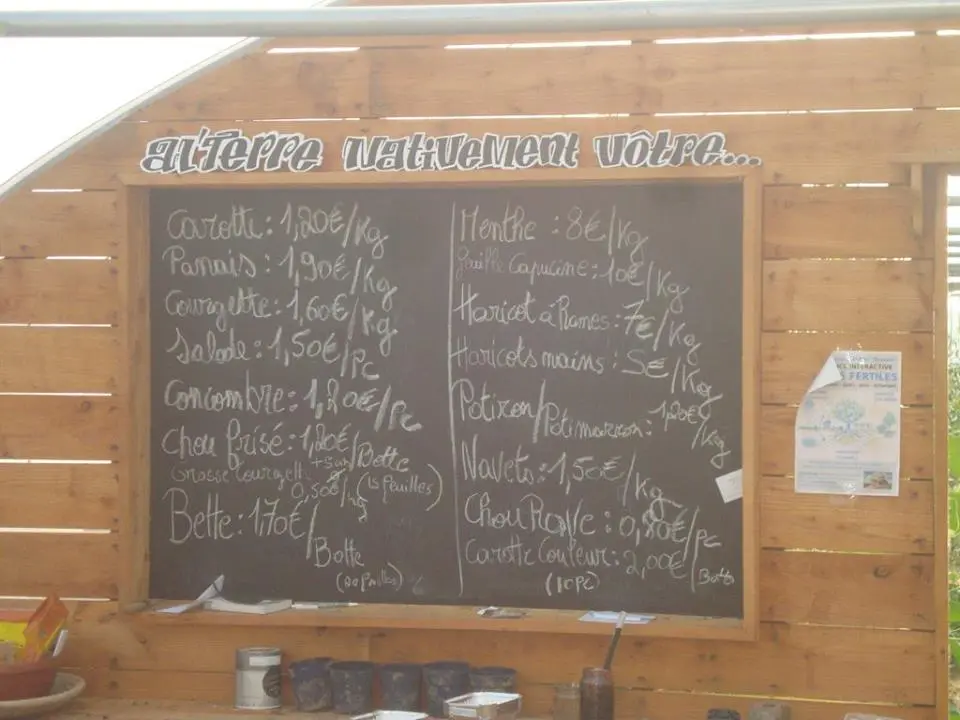 al'Terre Nativement vôtre...
Carotte : 1,20€/Kg
Panais : 1,90€/Kg
Courgette : 1,60€/Kg
Salade : 1,50€/Pc
Concombre : 1,20€/Pc
Chou frisé : 1,20€/Botte
(15 feuilles)
Grosse courgett
0,50€/kg
Bette : 1,70€/
Botte
Menthe : 8€/Kg
feuille Capucine : 10€/Kg
Haricot à Rames : 7€/Kg
Haricots mains : 5€/Kg
Potiron/Potimarron : 1,20€/Kg
Navets : 1,50€/Kg
Chou Rave : /Pc
Carotte Couleur : 2,00€/Botte
(10PC)
INTERACTIVE
FERTILES